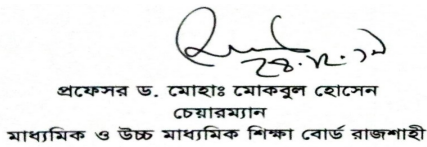 ২৪.১২.১৯
প্রফেসর ড. মোহাঃ মোকবুল হোসেন
চেয়ারম্যান
মাধ্যমিক ও উচ্চ মাধ্যমিক শিক্ষা বোর্ড রাজশাহী